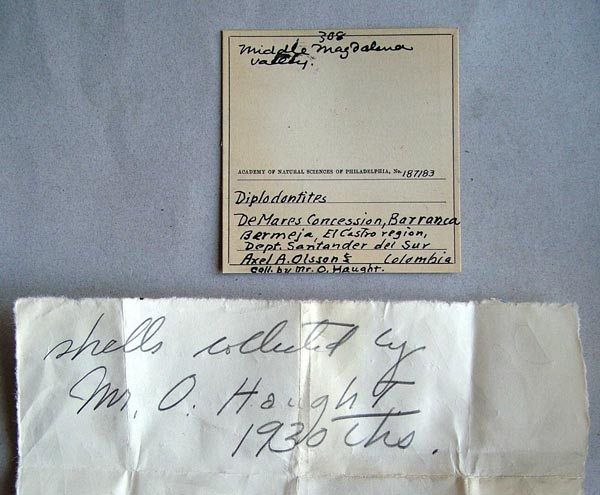 308
Middle Magdalena
Valley.
ACADEMY OF NATURAL SCIENCES OF PHILADELPHIA, No. 187183
Diplodontites
De Mares Concession, Barranca
Bermeja, El Castro region,
Dept. Santander del Sur
Axel A. Olsson & Colombia
Coll. by Mr. O. Haught.
shells collected by
Mr. O. Haught
1930ths.